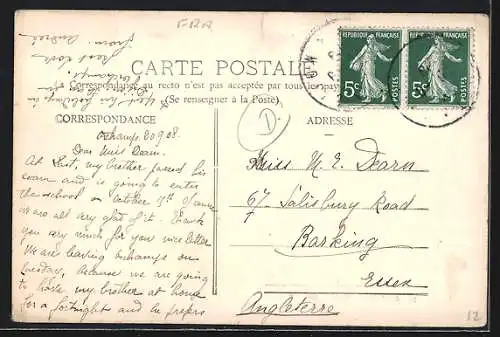 FRA
CARTE POSTALE
Correspondance au recto n'est pas acceptée par tous les pays
(Se renseigner à la Poste)
REPUBLIQUE FRANÇAISE
5c POSTES
REPUBLIQUE FRANÇAISE
5c POSTES
CORRESPONDANCE
ADRESSE
Orchamps 20 9 08.
Dear Miss Dearn.
At last, my brother passed his
exam and is going to enter
the school on October 1st of course
we are all very glad of it. Thank
you very much for your nice letter
We are leaving Orchamps on
tuesday, because we are going
to have my brother at home
for a fortnight and he prefers
love André
D
Miss N. E. Dearn
67 Salisbury Road
7
Barking
Essex
Angleterre
12